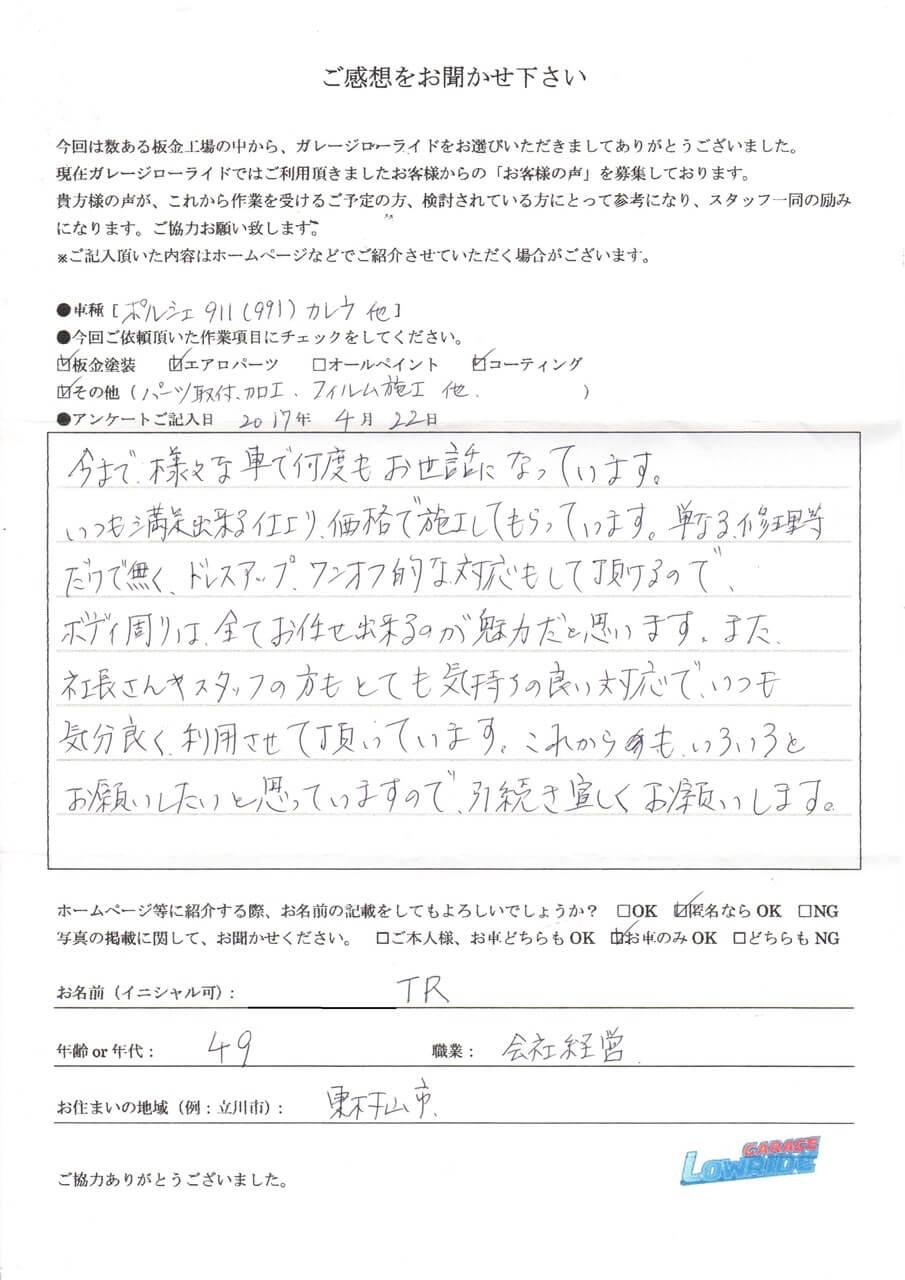 ご感想をお聞かせ下さい
今回は数ある板金工場の中から、ガレージローライドをお選びいただきましてありがとうございました。
現在ガレージローライドではご利用頂きましたお客様からの「お客様の声」を募集しております。
貴方様の声が、これから作業を受けるご予定の方、検討されている方にとって参考になり、スタッフ一同の励み
になります。ご協力お願い致します。
※ご記入頂いた内容はホームページなどでご紹介させていただく場合がございます。
●車種 [ ポルシェ 911 (991) カレラ 他 ]
●今回ご依頼頂いた作業項目にチェックをしてください。
☑板金塗装 ☑エアロパーツ □オールペイント ☑コーティング
☑その他 ( パーツ取付、加工、フィルム施工 他. )
●アンケートご記入日 2017年 4月 22日
今まで、様々な車で何度もお世話になっています。
いつも満足出来る仕上り、価格で施工してもらっています。単なる、修理等
だけで無く、ドレスアップ、ワンオフ的な対応もして頂けるので、
ボディ周りは、全てお任せ出来るのが魅力だと思います。また、
社長さんやスタッフの方もとても気持ちの良い対応で、いつも
気分良く、利用させて頂いています。これからも、いろいろと
お願いしたいと思っていますので、引続き宜しくお願いします。
ホームページ等に紹介する際、お名前の記載をしてもよろしいでしょうか? □OK ☑匿名なら OK □NG
写真の掲載に関して、お聞かせください。 □ご本人様、お車どちらも OK ☑お車のみ OK □どちらも NG
お名前(イニシャル可): TR
年齢 or 年代: 49 職業: 会社経営
お住まいの地域(例:立川市):東村山市
GARAGE
LOWRIDE
ご協力ありがとうございました。